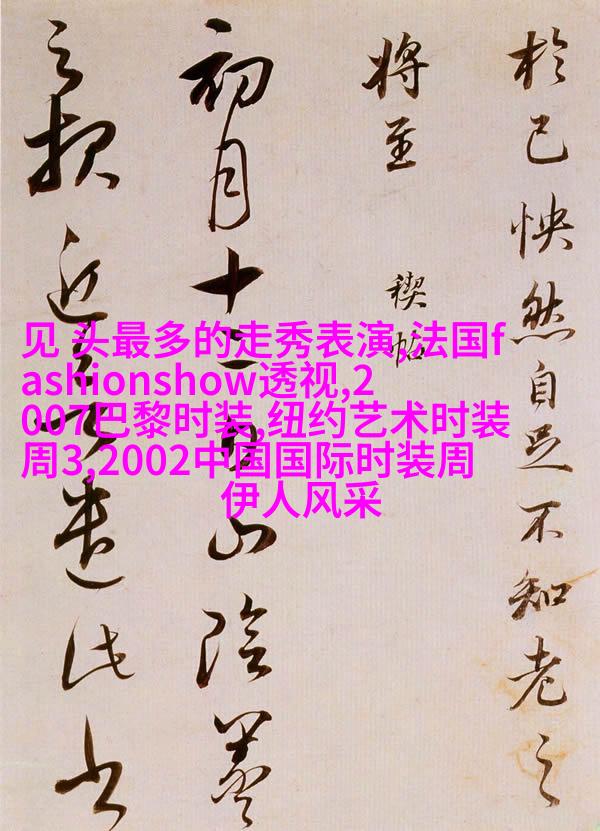 於己怏然自足不知老之
将至
禊帖
初月十二日山陰羲
之報近欲遣此書
见 头最多的走秀表演,法国f
ashionshow透视,2
007巴黎时装,纽约艺术时装
周3,2002中国国际时装周
伊人风采